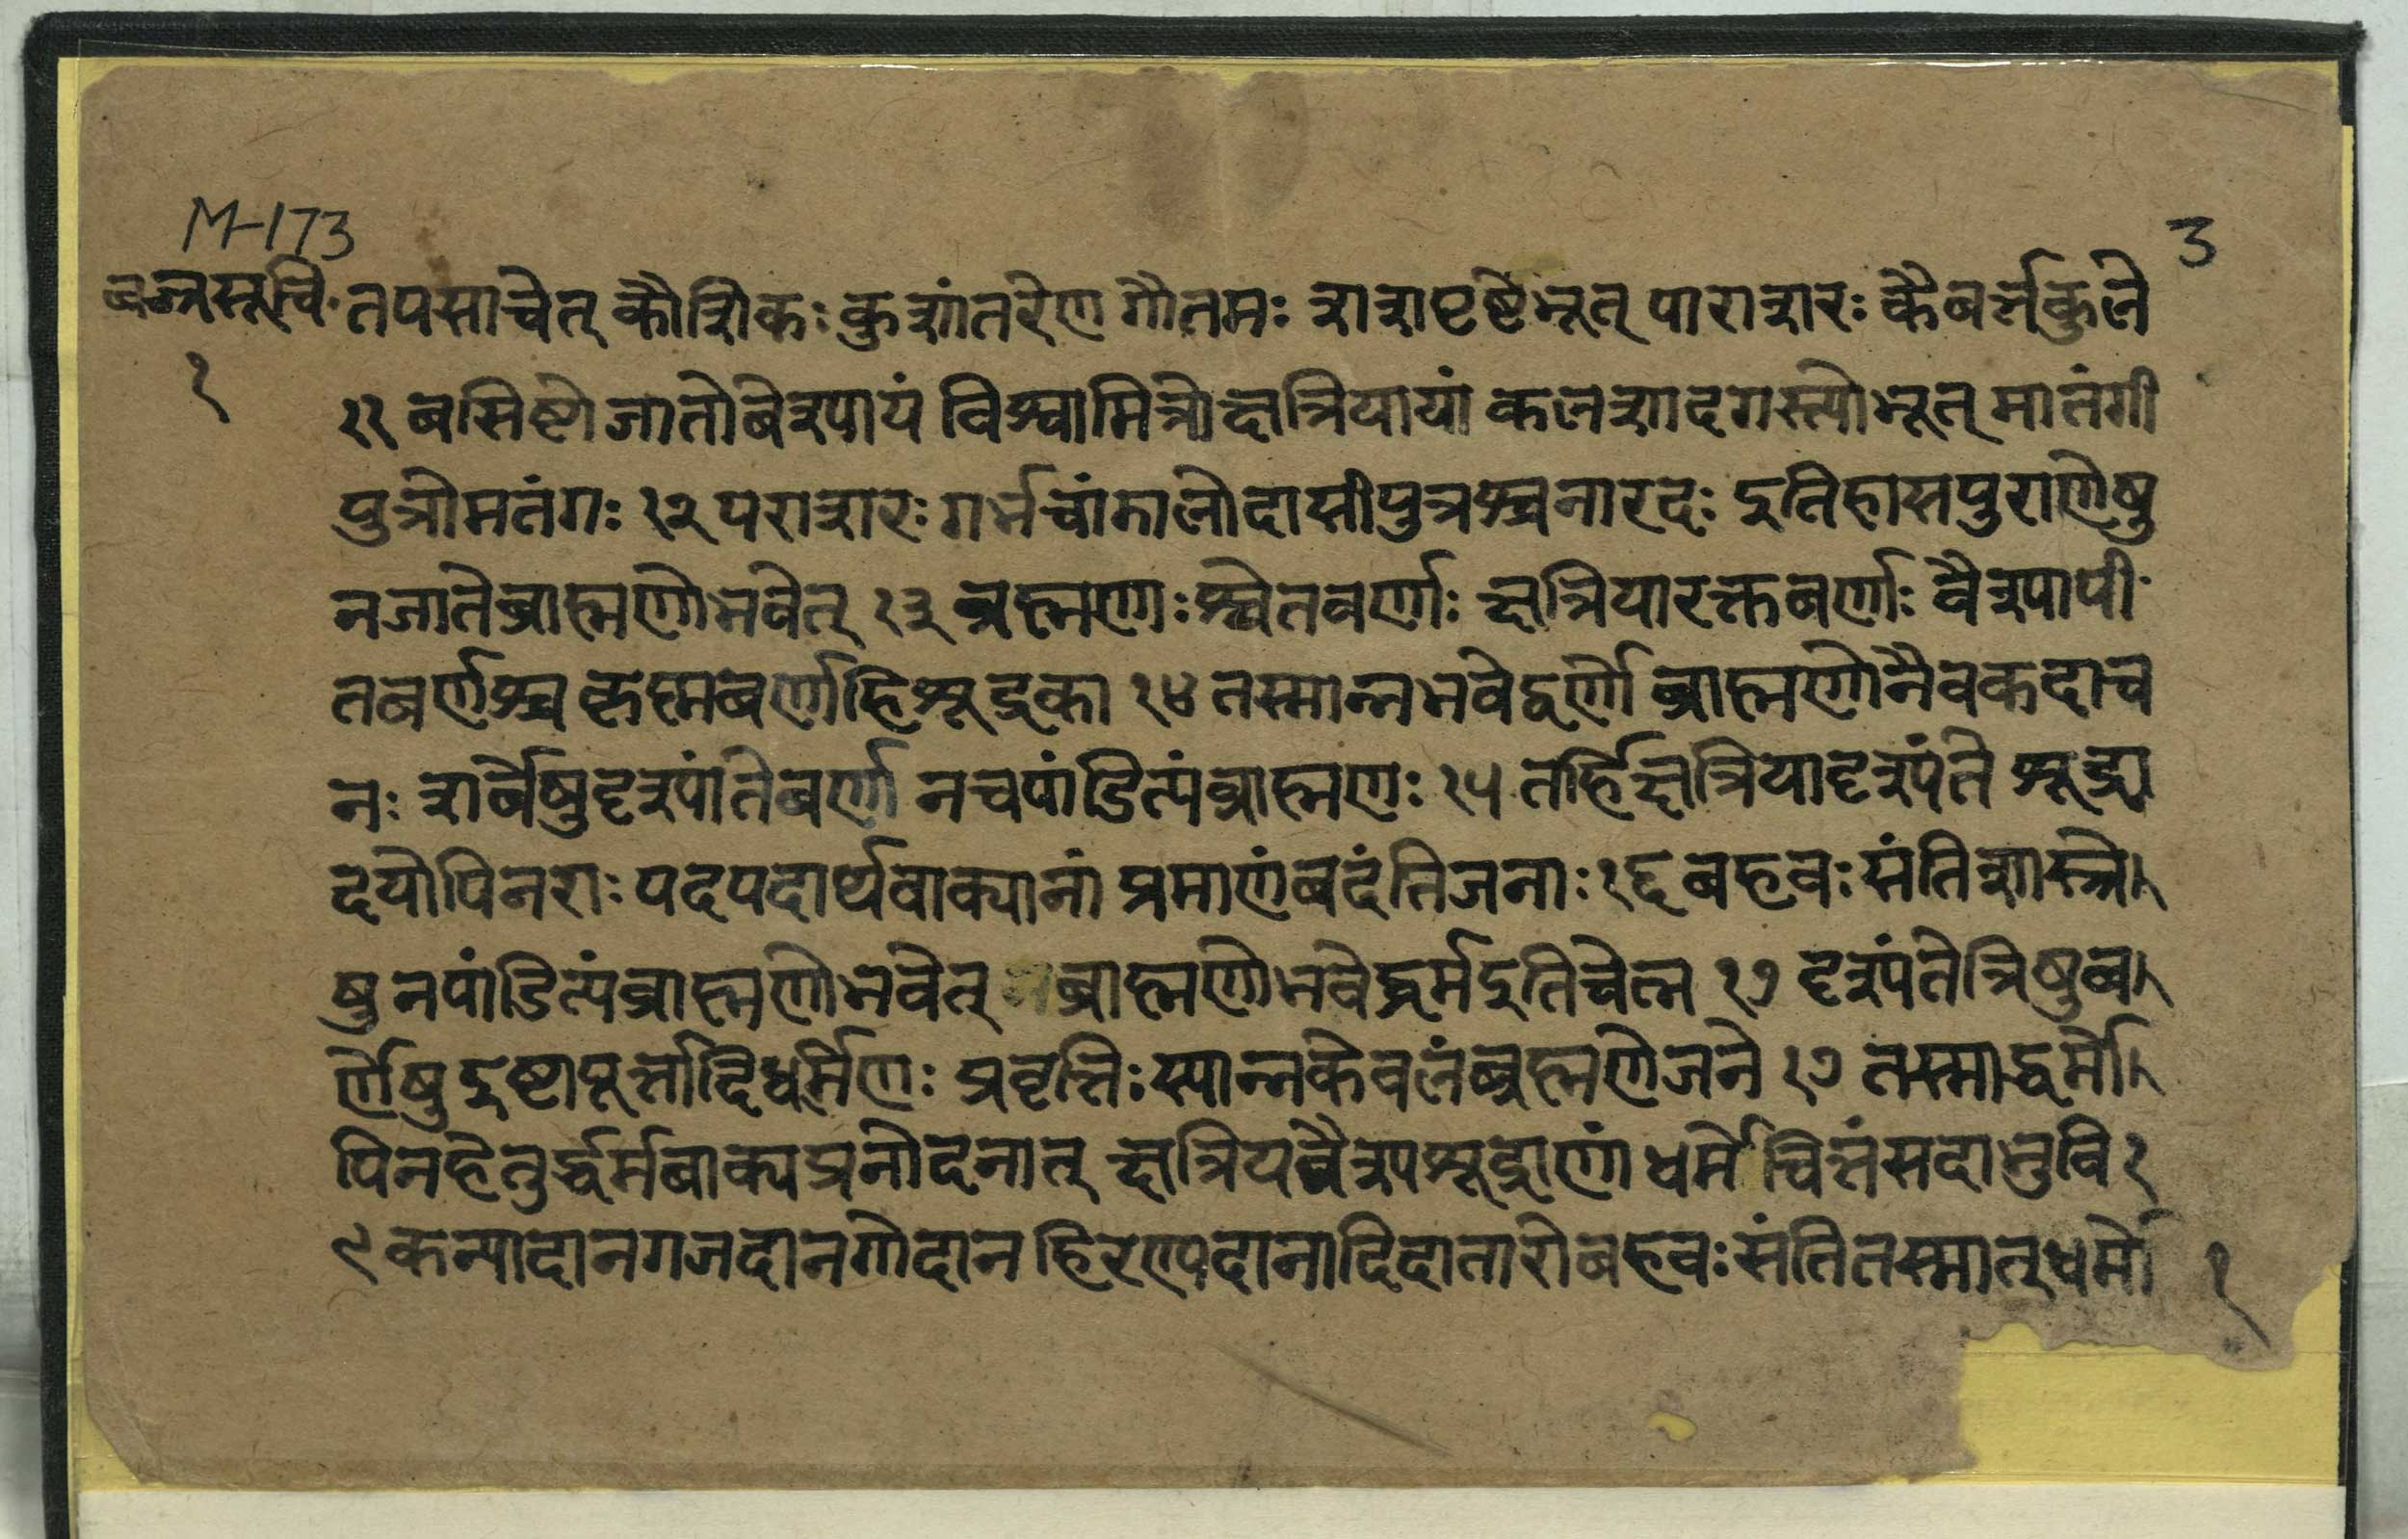 M-173
3
बज्रसूचि
१
तपसाचेत् कौशिकः कुशांतरेण गौतमः शशपृष्टेभूत् पाराशरः कैबर्त्तकुले
११ बसिष्टो जातोबेश्यायं विश्वामित्रोक्षत्रियायां कलशादगस्त्योभूत् मातंगी
पुत्रोमतंगः १२ पराशरः गर्भचांडालोदासीपुत्रश्चनारदः इतिहासपुराणेषु
नजातेब्राह्मणोभवेत् १३ ब्रह्मणाःश्वेतवर्णाः क्षत्रियारक्तबर्णाः वैश्यापी
तबर्णश्च कृह्मबर्णाहिशूद्रका १४ तस्मान्नभवेद्वर्णो ब्राह्मणोनैवकदाच
नः शर्बेषुदृश्यांतेबर्णा नचपांडित्यंब्राह्मणः १५ तर्हिक्षत्रियादृश्यंते शूद्रा
दयोपिनराः पदपदार्थवाक्यानां प्रमाणंबदंतिजनाः १६ बहवः संतिशास्त्रे
षु नपांडित्यंब्राह्मणोभवेत् ब्राह्मणोभवेद्धर्मइतिचेत्न १७ दृश्यंतेत्रिषुब
र्णेषु इष्टापूर्त्तादिधर्मिणः प्रवृत्तिः स्यान्नकेवलंब्रह्मणेजने १७ तस्माद्धर्मो
पिनहेतुर्द्धर्मबाक्यप्रनोदनात् क्षत्रियबैश्यशूद्राणां धर्मे चित्तंसदाभुवि १
९ कन्यादानगजदानगोदान हिरण्यदानादिदातारोबहवः संतितस्मात्धर्मो
१